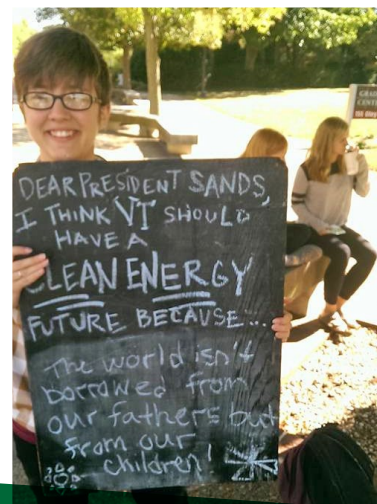 DEAR PRESIDENT SANDS,
I THINK VT SHOULD
HAVE A
CLEAN ENERGY
FUTURE BECAUSE...
The world isn't
borrowed from
our fathers but
from our
children!
GRAD
CENT